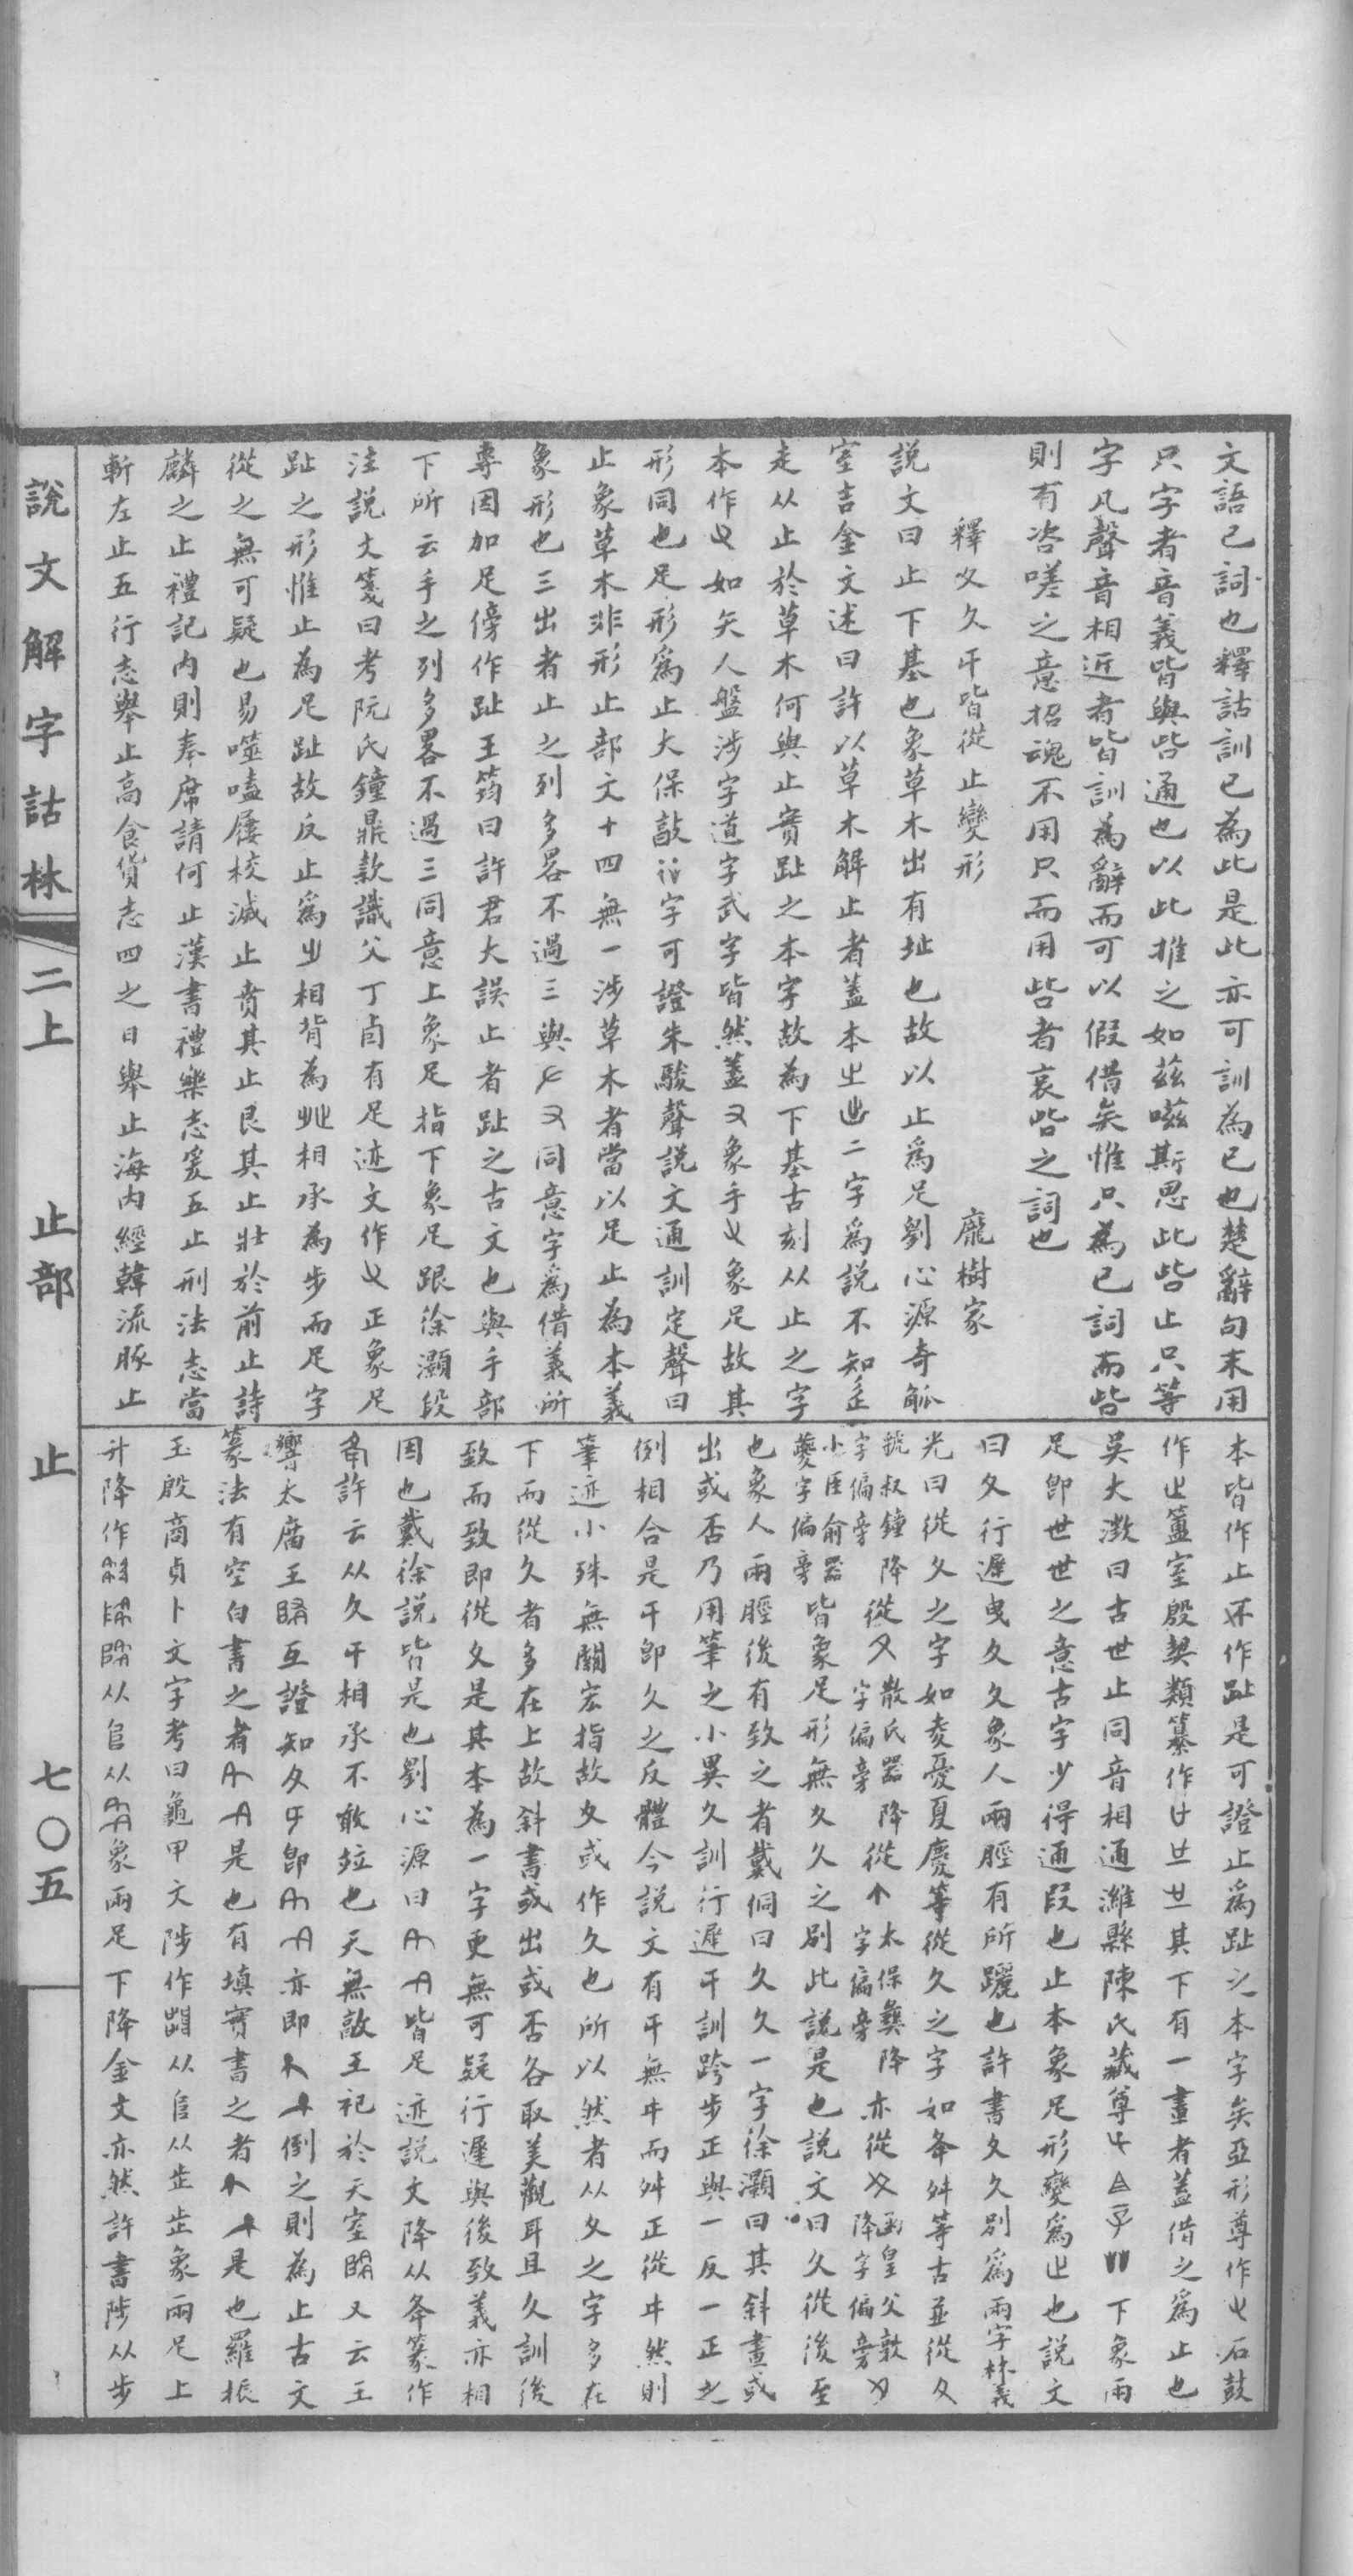 文語已詞也釋詁訓已為此是此亦可訓為已也楚辭句末用
只字者音義皆與呰通也以此推之如茲嗞斯思此呰止只等
字凡聲音相近者皆訓為辭而可以假借矣惟只為已詞而呰
則有咨嗟之意招魂不用只而用呰者哀呰之詞也
釋夊久㐄皆從止變形　龐樹家
說文曰止下基也象草木出有址也故以止爲足劉心源奇觚
室吉金文述曰許以草木解止者蓋本㞢二字爲說不知
走从止於草木何與止實趾之本字故為下基古刻从止之字
本作如矢人盤涉字道字武字皆然蓋又象手象足故其
形同也足形爲止大保敲字可證朱駿聲說文通訓定聲曰
止象草木非形止部文十四無一涉草木者當以足止為本義
象形也三出者止之列多畧不過三與又同意字爲借義所
專因加足傍作趾王筠曰許君大誤止者趾之古文也與手部
下所云手之列多畧不過三同意上象足指下象足跟徐灝段
注說文箋曰考阮氏鐘鼎款識父丁卣有足迹文作正象足
趾之形惟止為足趾故反止爲相背為相承為步而足字
從之無可疑也易噬嗑屨校滅止賁其止艮其止壯於前止詩
麟之止禮記內則奉席請何止漢書禮樂志爰五止刑法志當
斬左止五行志舉止高食貨志四之日舉止海內經韓流豚止
本皆作止不作趾是可證止爲趾之本字矣亞形尊作石鼓
作簠室殷契類纂作其下有一畫者蓋借之爲止也
吳大澂曰古世止同音相通濰縣陳氏藏尊下象兩
足即世世之意古字少得通叚也止本象足形變爲也說文
曰夊行遲曳夊夊象人兩脛有所躧也許書夊久別爲兩字林義
光曰從夊之字如夌憂夏慶等從久之字如夅舛等古並從夊
虢叔鐘降字偏旁從散氏器降字偏旁從太保彝降字偏旁亦從函皇父敦降字偏旁
小臣俞器夔字偏旁皆象足形無夊久之別此說是也說文曰夂從後至
也象人兩脛後有致之者戴侗曰夊久一字徐灝曰其斜畫或
出或否乃用筆之小異久訓行遲㐄訓跨步正與一反一正之
例相合是㐄即久之反體今說文有㐄無而舛正從然則
筆迹小殊無關宏指故夊或作久也所以然者从夊之字多在
下而從久者多在上故斜書或出或否各取美觀耳且久訓後
致而致即從夊是其本為一字更無可疑行遲與後致義亦相
因也戴徐說皆是也劉心源曰皆足迹說文降从夅篆作
許云从久㐄相承不敢竝也天無敲王祀於天室又云王
饗太廟王互證知夊即亦即倒之則為止古文
篆法有空白書之者是也有填實書之者是也羅振
玉殷商貞卜文字考曰龜甲文陟作从𨸏从象兩足上
升降作从𨸏从象兩足下降金文亦然許書陟从步
說文解字詁林　二上　止部　止　七〇五